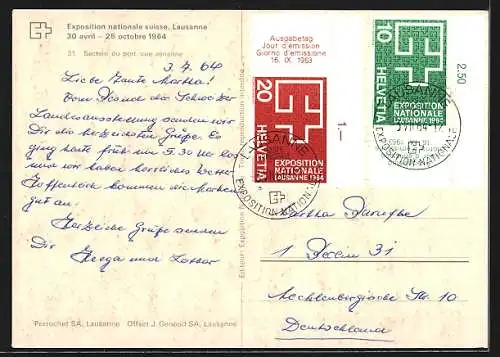 Exposition nationale suisse, Lausanne
30 avril - 25 octobre 1964
21. Secteur du port, vue aérienne
3. 7. 64
Liebe Tante Martha!
Vom Strande der Schweizer
Landesausstellung senden wir
Dir die herzlichsten Grüße. Es
ging heute früh um 5.30 Uhr los
und wir haben herrliches Wetter.
Hoffentlich kommen die Marken
gut an.
Herzliche Grüße senden
Dir Helga und
Perrochet SA, Lausanne Offset J. Genoud SA, Lausanne
Ausgabetag
Jour d'émission
Giorno d'emissione
16. IX. 1963
20
HELVETIA
EXPOSITION
NATIONALE
LAUSANNE 1964
1
10
HELVETIA
EXPOSITION
NATIONALE
LAUSANNE 1964
2.50
LAUSANNE
EXPOSITION NATIONALE
LAUSANNE
EXPOSITION NATIONALE
Martha
1 Berlin 31
Mecklenburgische Str. 10
Deutschland